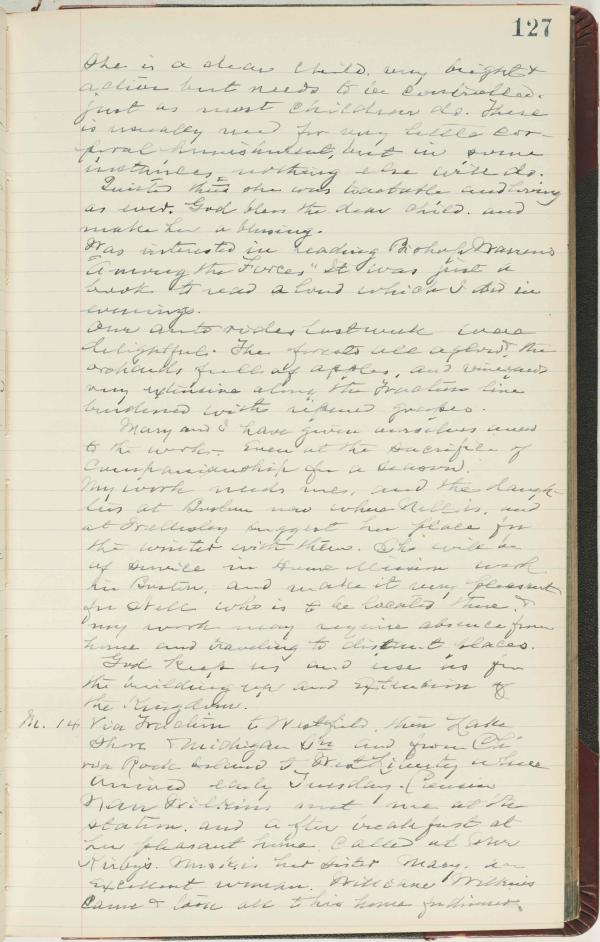 127
She is a dear child. very bright &
active but needs to be controlled.
just as most children do. There
is usually need for very little cor-
poral punishment, but in some
instances, nothing else will do.
she was tractable and loving
as ever. God bless the dear child. and
make her a blessing.
Was interested in reading Bishop Warren's
"Among the Forces" It was just a
book to read aloud which I did in
evenings.
Our auto rides last week were
delightful. The forests all aglow, the
orchards full of apples, and vineyards
very extensive along the Traction line
burdened with ripened grapes.
Mary and I have given ourselves anew
to the work. Even at the sacrifice of
Companionship for a season.
My work needs me, and the daugh-
ters at Boston now where Nell is, and
at Wellesley suggest her place for
the winter with them. She will be
of service in Home Mission work
in Boston, and make it very pleasant
for Nell who is to be located there. &
my work may require absence from
home and traveling to distant places.
God keep us and use us for
the building up and extension of
the Kingdom.
M. 14 Via Traction to Westfield, then Lake
Shore & Michigan So and from Chi
via Rock Island to West Liberty where
arrived early Tuesday. Cousin
Wilkins met me at the
station. and after breakfast at
her pleasant home. Called at
Kirby's. her sister Mary. an
excellent woman. Wilkins
came & took all to his home for dinner.